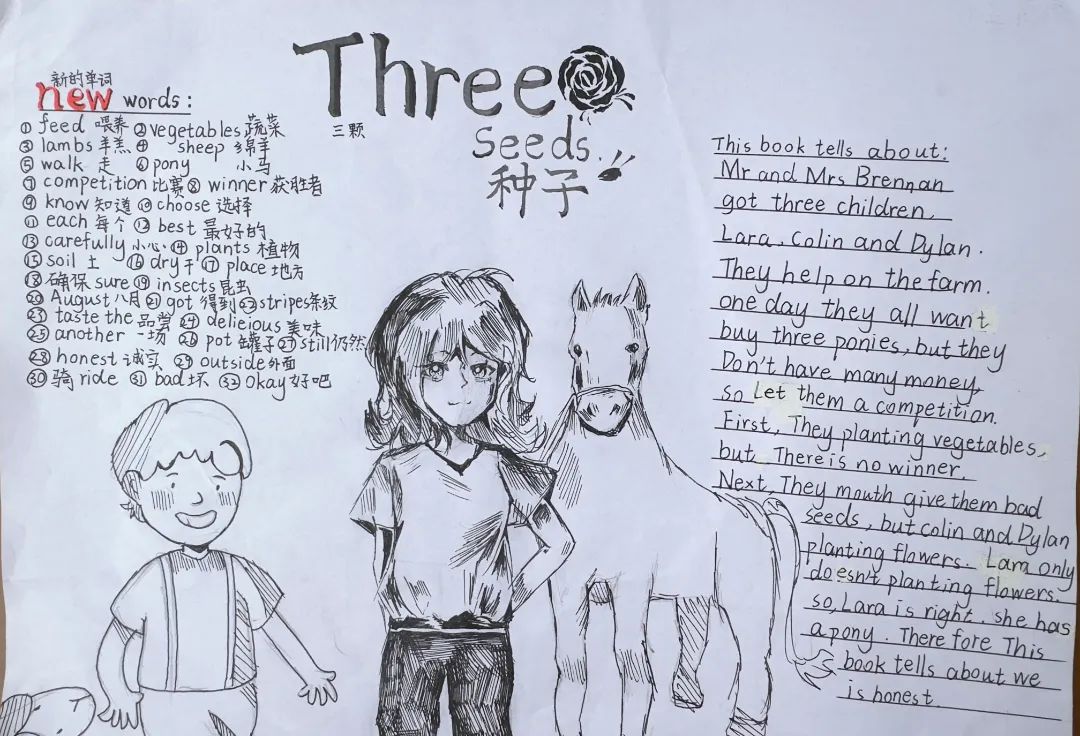 Three
三颗
Seeds
种子
新的单词
new words:
① feed 喂养 ② vegetables 蔬菜
③ lambs 羊羔 ④ sheep 绵羊
⑤ walk 走 ⑥ pony 小马
⑦ competition 比赛 ⑧ winner 获胜者
⑨ know 知道 ⑩ choose 选择
⑪ each 每个 ⑫ best 最好的
⑬ carefully 小心 ⑭ plants 植物
⑮ soil 土 ⑯ dry 干 ⑰ place 地方
⑱ 确保 sure ⑲ insects 昆虫
⑳ August 八月 ㉑ got 得到 ㉒ stripes 条纹
㉓ taste the 品尝 ㉔ delieious 美味
㉕ another 一场 ㉖ pot 罐子 ㉗ still 仍然
㉘ honest 诚实 ㉙ outside 外面
㉚ 骑 ride ㉛ bad 坏 ㉜ Okay 好吧
This book tells about:
Mr and Mrs Brennan
got three children,
Lara, Colin and Dylan.
They help on the farm.
one day they all want
buy three ponies, but they
Don't have many money,
so Let them a competition.
First, They planting vegetables,
but, There is no winner.
Next, They mouth give them bad
seeds, but colin and Dylan
planting flowers. Lam only
doesn't planting flowers.
so, Lara is right. she has
a pony. There fore This
book tells about we
is honest.